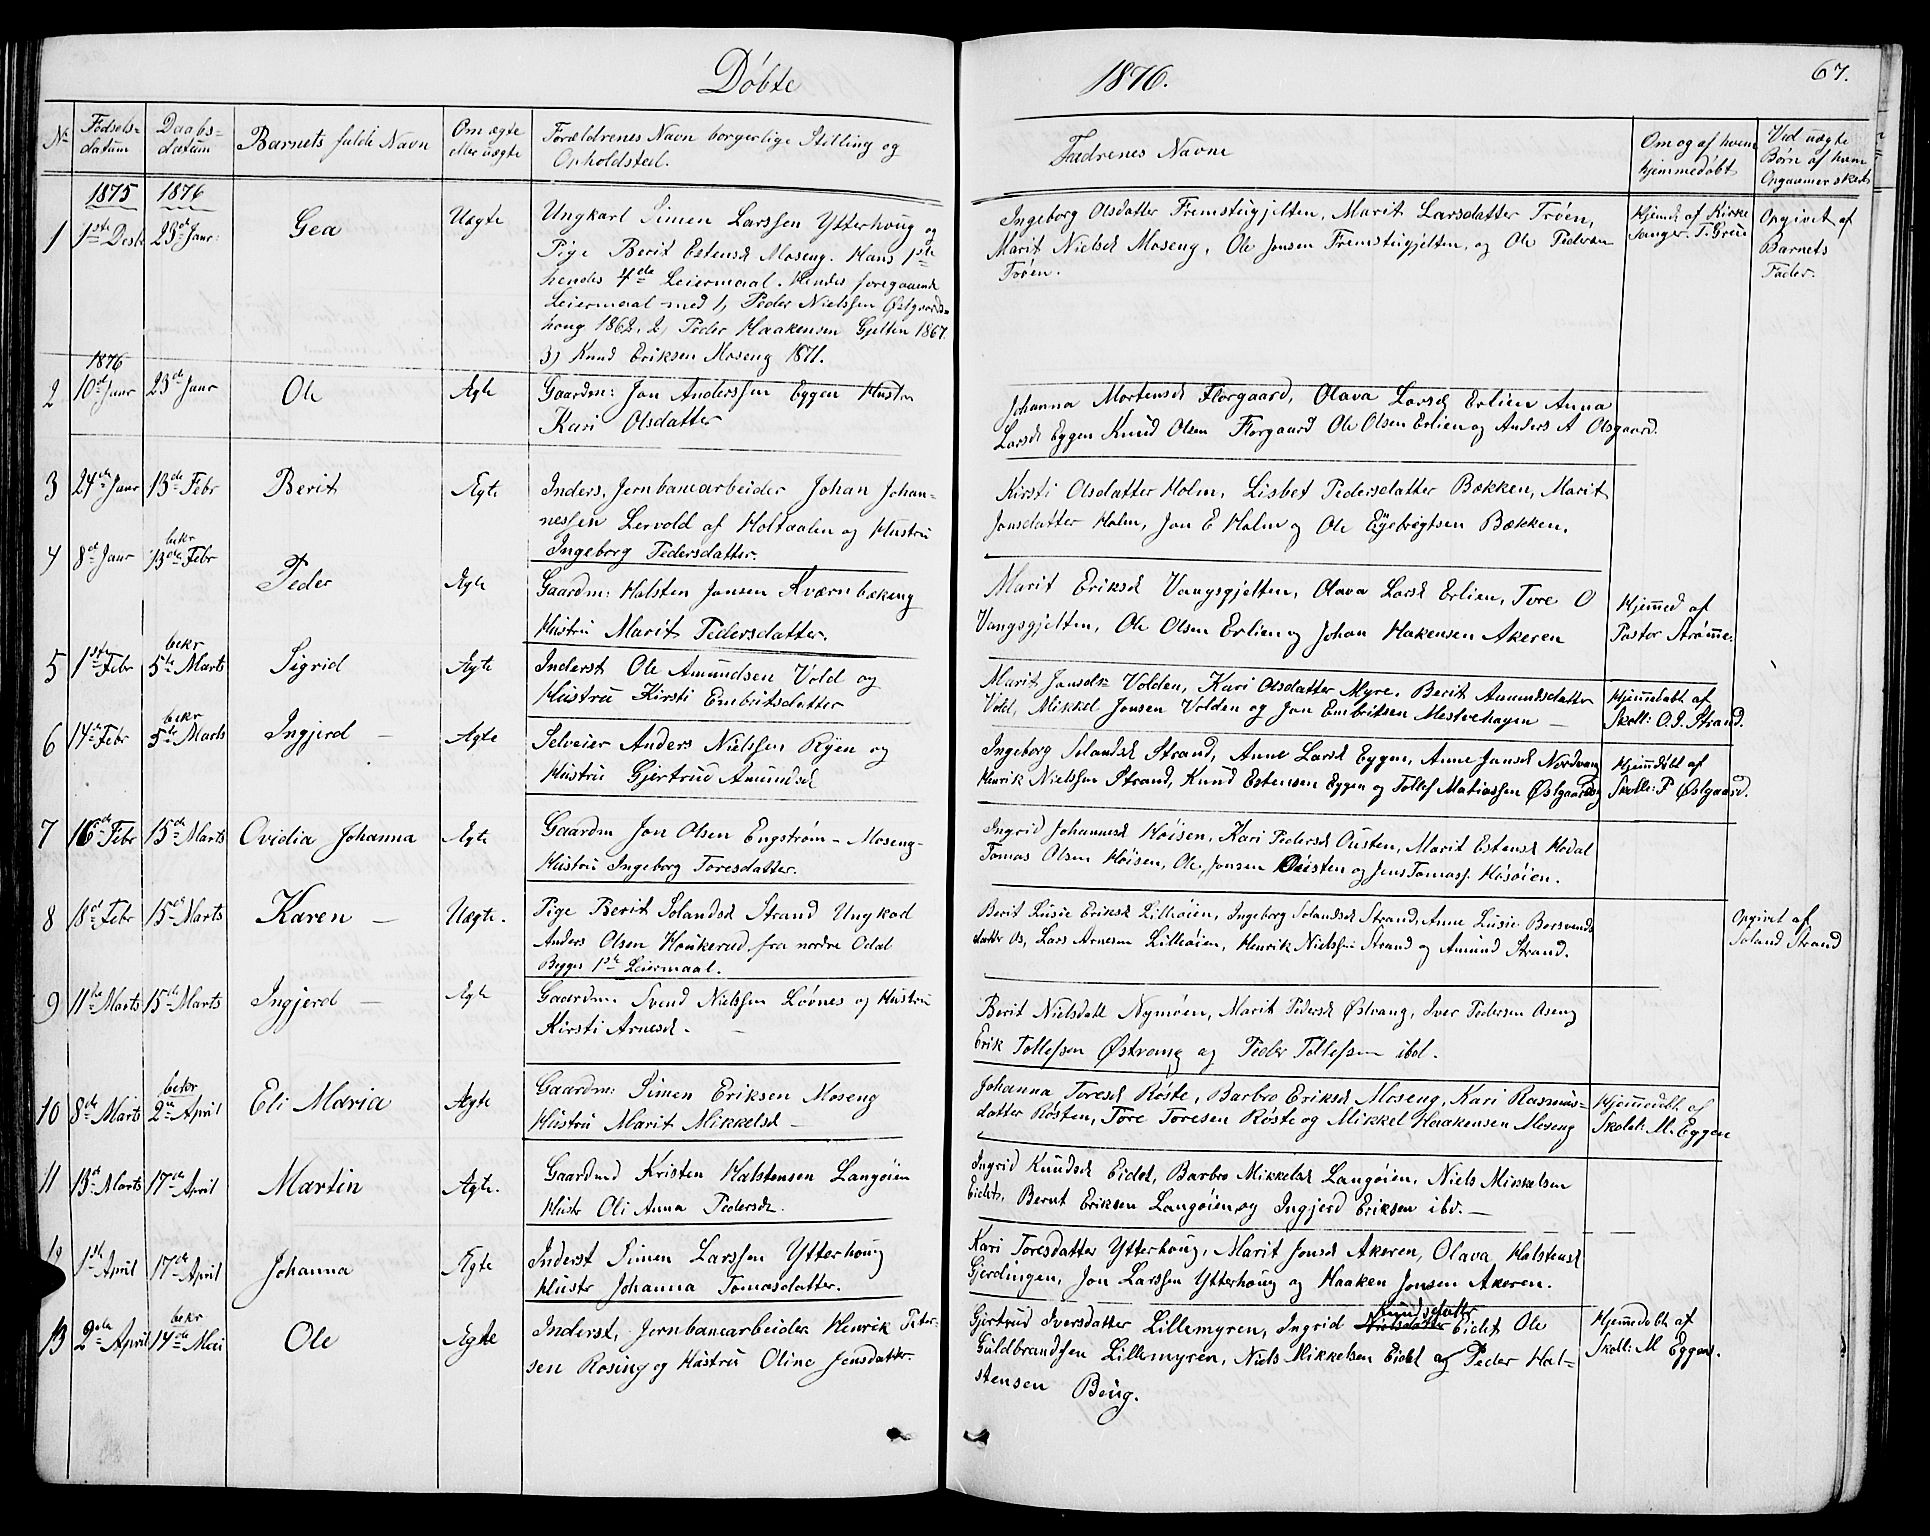 Døbte
1876.
67.
No
Fødsels-
datum
Daabs-
datum
Barnets fulde Navn
Om ægte
eller uægte
Forældrenes Navn borgerlige Stilling og
Opholdsted.
Fadrenes Navne
Om og af hvem
hjemmedøbt
Ved uægte
Børn af hvem
Opgaven er skeet
1875
1876
1
1ste Decb
23de Janr
Gea
Uægte
Ungkarl Simen Larssen Ytterhoug og
Pige Berit Estensd Moseng. Hans 1ste
hendes 4de Leiermaal. Hendes foregaaende
Leiermaal med 1, Peder Nielssen Østgaards-
houg 1862. 2, Peder Haakensen Gjelten 1867.
3) Knud Eriksen Moseng 1871.
Ingeborg Olsdatter Fremstugjelten, Marit Larsdatter Trøen,
Marit Nielsd Moseng, Ole Jonsen Fremstugjelten, og Ole Pedersen
Trøen.
Hjemd af Kirke
sanger T. Grue
Opgivet af
Barnets
Fader.
1876
2
10de Janr
23de Janr
Ole
Ægte
Gaardm: Jon Anderssen Eggen Hustru
Kari Olsdatter
Johanna Mortensd Florgaard, Olava Larsd Erlien Anna
Larsd Eggen Knud Olsen Florgaard Ole Olsen Erlien og Anders A Olsgaard.
3
24de Janr
13de Febr
Berit
Ægte
Inders. Jernbanearbeider Johan Johan-
nessen Lervold af Holtaalen og Hustru
Ingeborg Pedersdatter.
Kirsti Olsdatter Holm, Lisbet Pedersdatter Bækken, Marit
Jonsdatter Holm, Jon E Holm og Ole Engebrigtsen Bækken.
4
8de Janr
bekr
13de Febr
Peder
Ægte
Gaardm: Halsten Jonsen Kværnbækeng
Hustru Marit Pedersdatter.
Marit Eriksd Vangsgjelten, Olava Larsd Erlien, Tore O
Vangsgjelten, Ole Olsen Erlien og Johan Hakensen Akeren
Hjemmed af
Pastor Strømme.
5
1ste Febr
bekr
5te Marts
Sigrid
Ægte
Inderst Ole Amundsen Vold og
Hustru Kirsti Embritsdatter
Marit Jonsdtr Volden, Kari Olsdatter Myre, Berit Amundsdatter
Vold, Mikkel Jonsen Volden og Jon Embritsen Mestvehagen —
Hjemmedøbt af
Skoll: O. J. Strand.
6
14de Febr
bekr
5te Marts
Ingjerd —
Ægte
Selveier Anders Nielssen Ryen og
Hustru Gjertrud Amundsd
Ingeborg Solandsd Strand, Anne Larsd Eggen, Anne Jonsd Nordvang
Henrik Nielssen Strand, Knud Estensen Eggen og Tollef Matiassen Østgaardseg
Hjemmdøbt af
Skoll: P Østgaard.
7
16de Febr
15de Marts
Ovidia Johanna
Ægte
Gaardm Jon Olsen Engstrøm - Moseng -
Hustru Ingeborg Toresdatter.
Ingrid Johannesd Høisen, Kari Pedersd Ousten, Marit Estensd Hodal
Tomas Olsen Høisen, Ole Jonsen Ousten og Jens Tomass. Høsøien.
8
18de Febr
15de Marts
Karen —
Uægte.
Pige Berit Solandsd Strand Ungkarl
Anders Olsen Houkerud fra nordre Odal
Begges 1ste Leiermaal.
Berit Lusie Eriksd Lilleøien, Ingeborg Solandsd Strand, Anne Lusie Borsvends
datter Os, Lars Arnesen Lilleøien, Henrik Nielssen Strand og Amund Strand.
Opgivet af
Soland Strand
9
11te Marts
15de Marts
Ingjerd —
Ægte
Gaardm. Svend Nielssen Løvnes og Hustru
Kirsti Arnesd. —
Berit Nielsdatt Nymoen, Marit Pedersd Østvang, Iver Pedersen Aseng
Erik Tollefsen Østvang og Peder Tollefsen ibd.
10
8de Marts
bekr
2den April
Eli Maria
Ægte
Gaardm: Simen Eriksen Moseng
Hustru Marit Mikkelsd —
Johanna Toresd Røste, Barbro Eriksd Moseng, Kari Rasmus-
datter Røsten, Tore Toresen Røste og Mikkel Haakensen Moseng
Hjemmedøbt af
Skolel: M. Eggen
11
13de Marts
17de April
Martin
Ægte.
Gaardmd Kristen Halstensen Langøien
Hustr Oli Anna Pedersd.
Ingrid Knudsd Eidet, Barbro Mikkelsd Langøien, Niels Mikkelsen
Eidet, Bernt Eriksen Langøien og Ingjerd Eriksen ibd. —
12
1ste April
17de April
Johanna
Ægte
Inderst Simen Larssen Ytterhoug
Hustr Johanna Tomasdatter.
Kari Toresdatter Ytterhoug, Marit Jonsd Akeren, Olava Halstensd
Gjerdingen, Jon Larssen Ytterhoug og Haaken Jonsen Akeren.
13
2den April
bekr
14de Mai
Ole
Ægte
Inderst, Jernbanearbeider Henrik Peter-
sen Rosing og Hustru Oline Jensdatter.
Knudsdatter
Gjertrud Iversdatter Lillemyren, Ingrid Nielsdatter Eidet Ole
Guldbrandsen Lillemyren, Niels Mikkelsen Eidet og Peder Hal-
stensen Boug.
Hjemmedøbt af
Skoll: M Eggen.